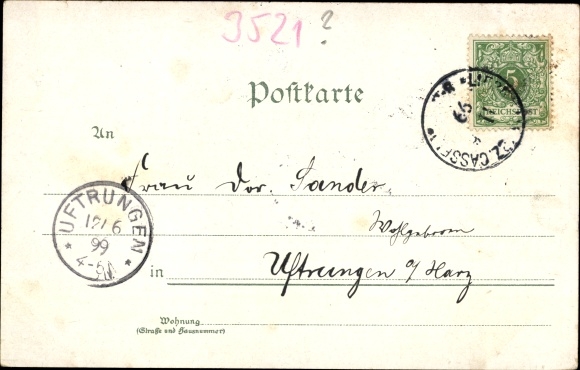 3521?
5
REICHSPOST
Postkarte
CASSEL
An
Frau Dor. Sander
Wohlgeboren
UFTRUNGEN
12/6
99
4-5N
in
Uftrungen a/Harz
Wohnung
(Straße und Hausnummer)